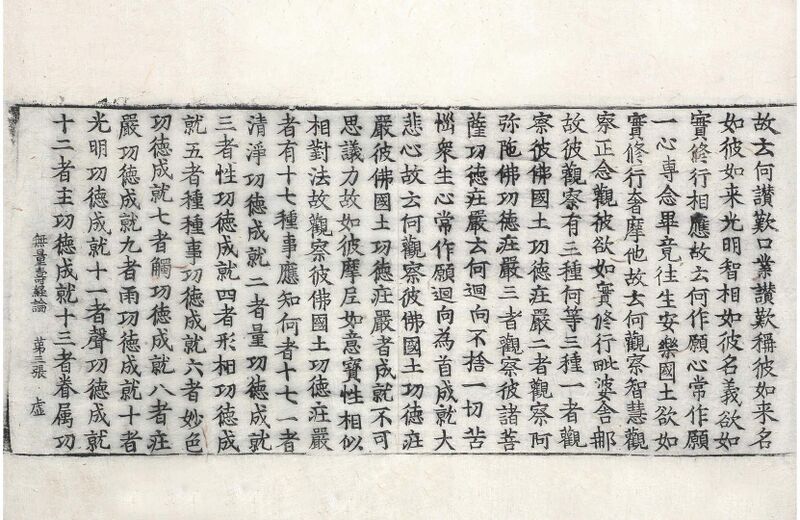 故云何讃歎口業讃歎稱彼如来名
如彼如来光明智相如彼名義欲如
實修行相應故云何作願心常作願
一心專念畢竟往生安樂國土欲如
實修行奢摩他故云何觀察智慧觀
察正念觀彼欲如實修行毗婆舍那
故彼觀察有三種何等三種一者觀
察彼佛國土功德莊嚴二者觀察阿
弥陁佛功德莊嚴三者觀察彼諸菩
薩功德莊嚴云何迴向不捨一切苦
惱衆生心常作願迴向為首成就大
悲心故云何觀察彼佛國土功德莊
嚴彼佛國土功德莊嚴者成就不可
思議力故如彼摩尼如意寶性相似
相對法故觀察彼佛國土功德莊嚴
者有十七種事應知何者十七一者
清淨功德成就二者量功德成就
三者性功德成就四者形相功德成
就五者種種事功德成就六者妙色
功德成就七者觸功德成就八者莊
嚴功德成就九者雨功德成就十者
光明功德成就十一者聲功德成就
十二者主功德成就十三者眷属功
無量壽經論 第三張 虛